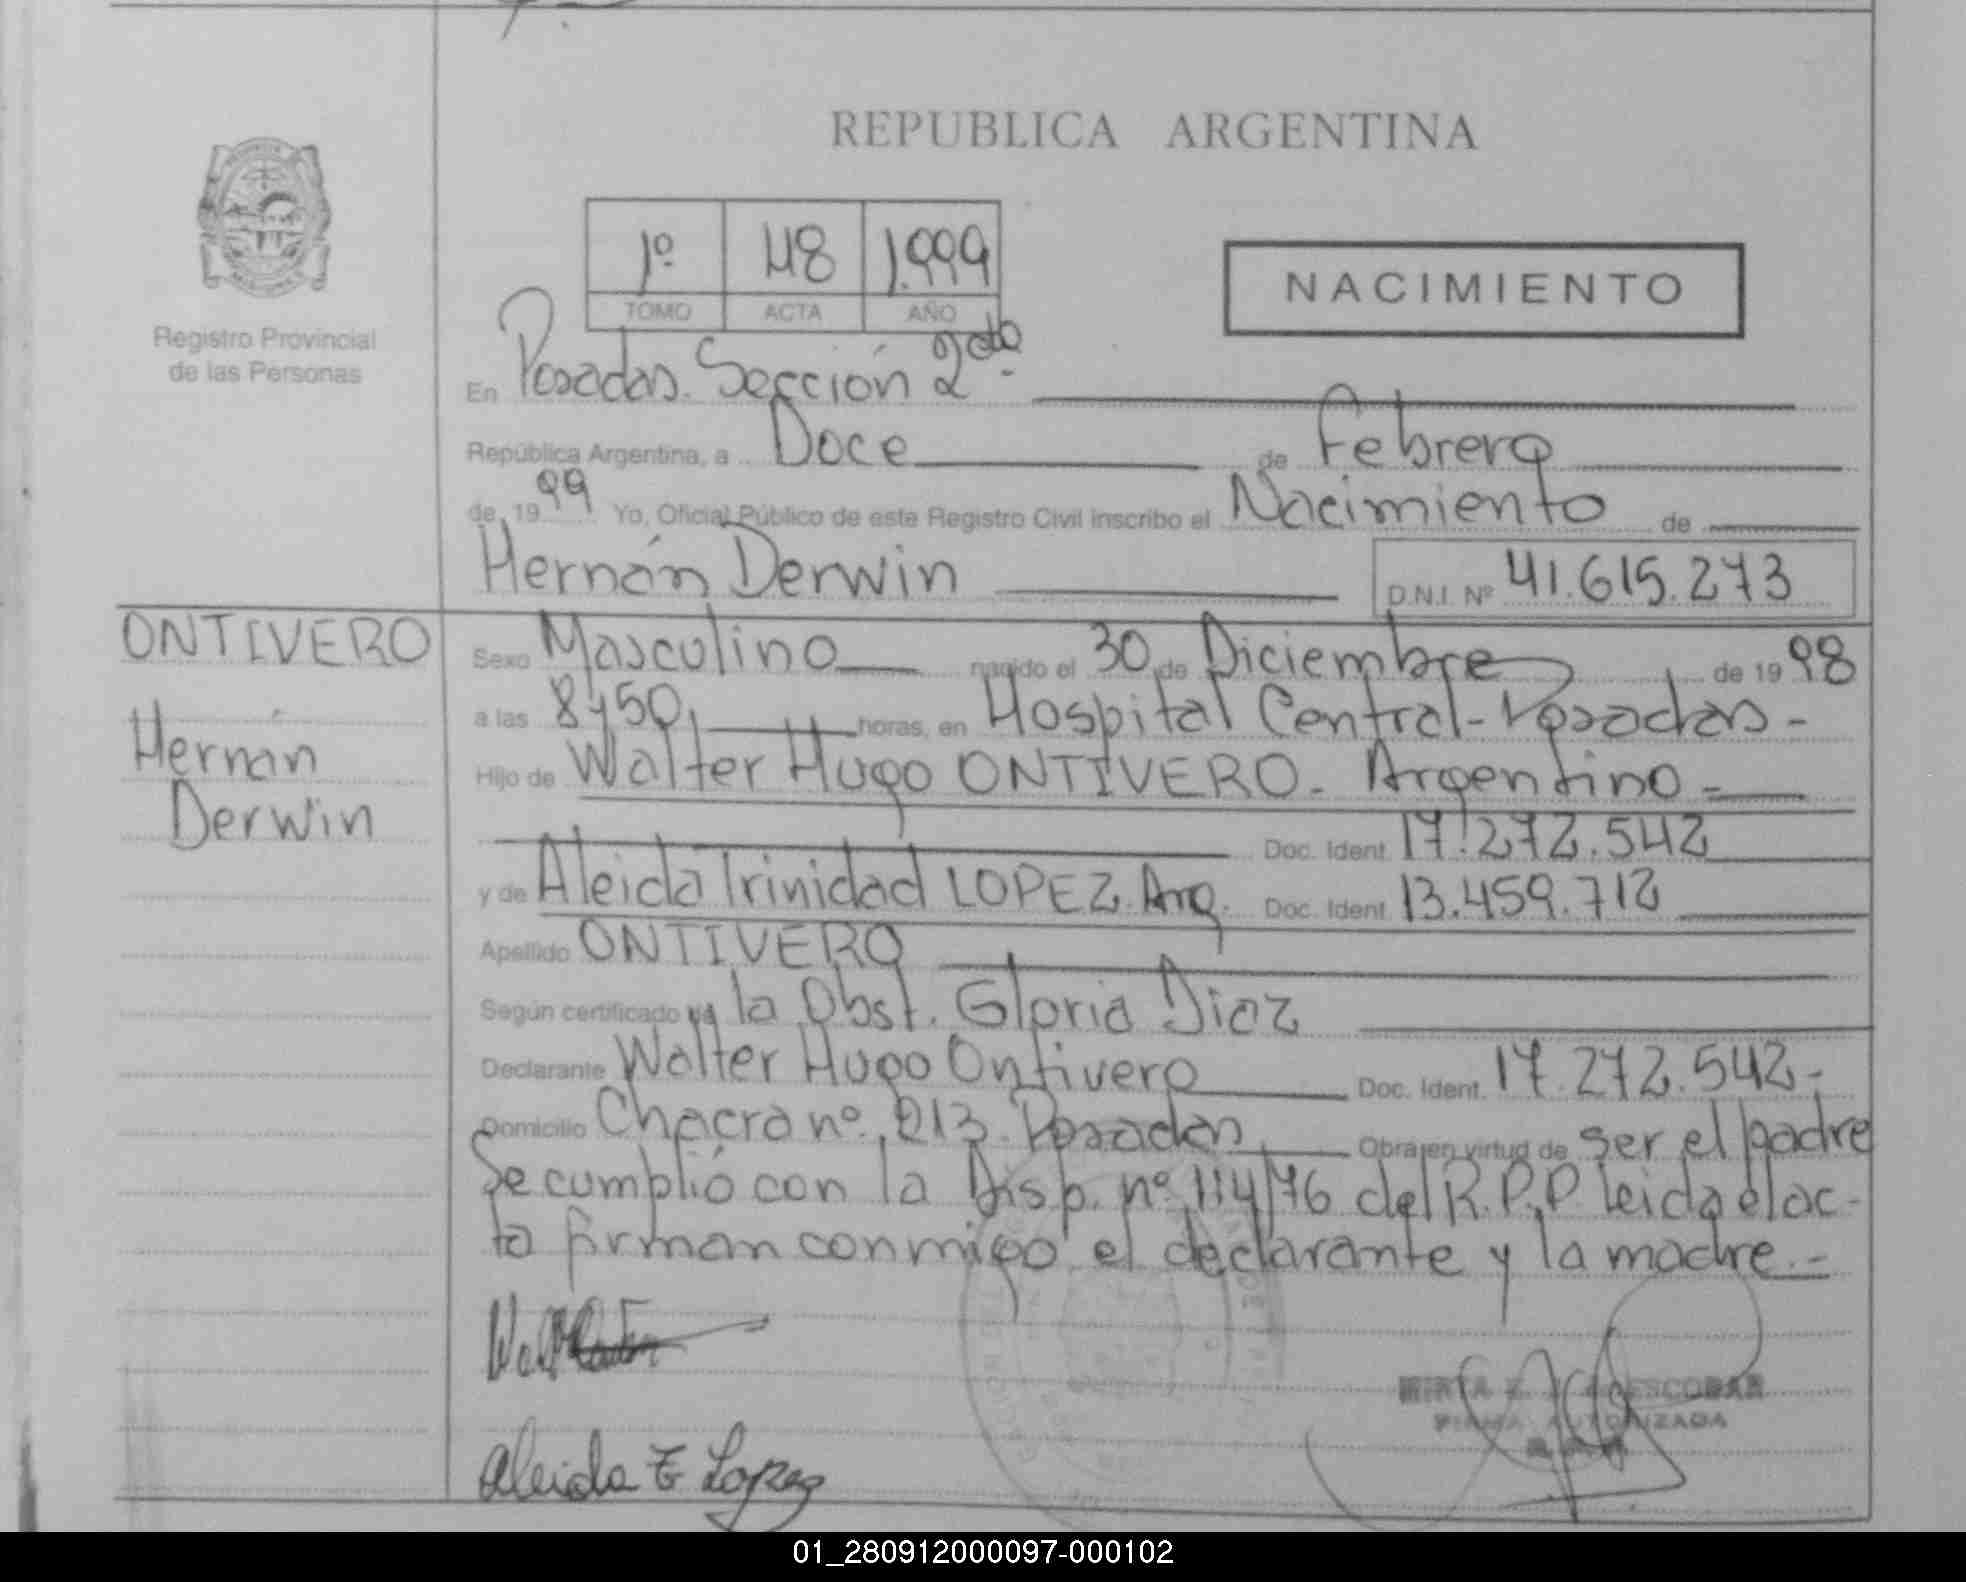 REPUBLICA ARGENTINA
1º 48 1.999
TOMO ACTA AÑO
NACIMIENTO
Registro Provincial
de las Personas
En Posadas. Sección 2da.
República Argentina, a Doce de Febrero
de 1999 Yo, Oficial Público de este Registro Civil inscribo el Nacimiento de
Hernán Derwin D.N.I. Nº 41.615.273
ONTIVERO
Hernán
Derwin
Sexo Masculino nacido el 30 de Diciembre de 1998
a las 8y50, horas, en Hospital Central-Posadas-
Hijo de Walter Hugo ONTIVERO. Argentino-
Doc. Ident. 17.272.542
y de Aleida Trinidad LOPEZ. Arg. Doc. Ident. 13.459.712
Apellido ONTIVERO
Según certificado de la Obst. Gloria Diaz
Declarante Walter Hugo Ontivero Doc. Ident. 17.272.542-
Domicilio Chacra nº 213 Posadas Obra en virtud de ser el padre
Se cumplió con la Disp. nº 114/76 del R.P.P leida el ac-
ta firman conmigo el declarante y la madre.-
Aleida T Lopez
ESCOBAR
FIRMA AUTORIZADA
01_280912000097-000102